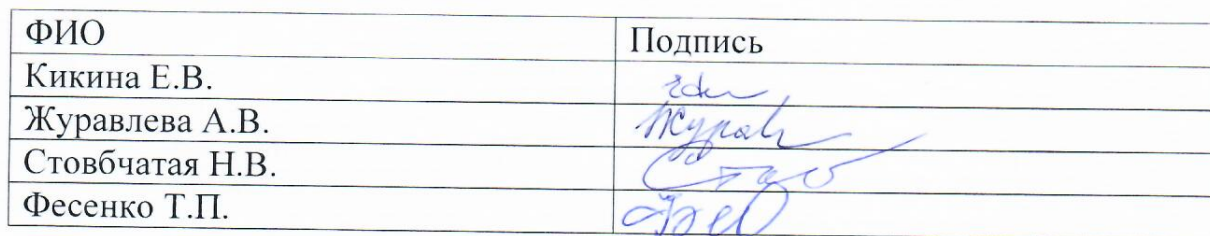 ФИО Подпись
Кикина Е.В.
Журавлева А.В.
Стовбчатая Н.В.
Фесенко Т.П.